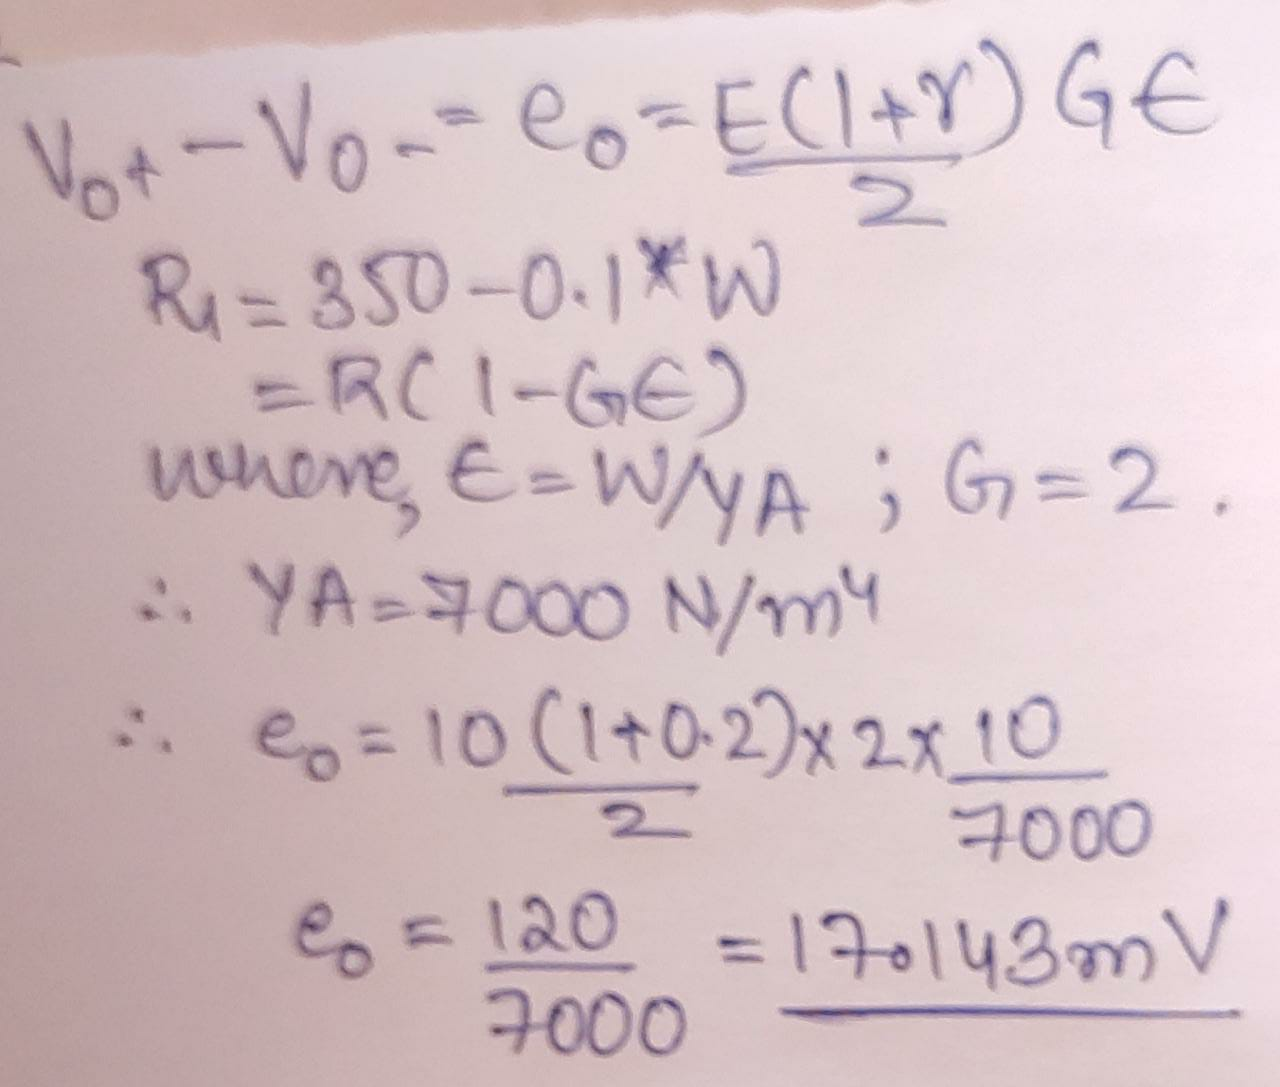 V₀₊ - V₀₋ = e₀ = E(1+r)/2 GЄ
R₁ = 350 - 0.1*W
= R(1-GЄ)
where, Є = W/YA ; G = 2.
∴ YA = 7000 N/m⁴
∴ e₀ = 10(1+0.2)/2 x 2 x 10/7000
e₀ = 120/7000 = 17.143mV